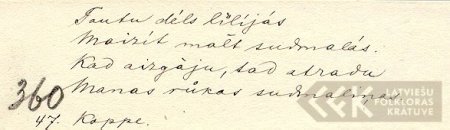 Tautu dēls lielijās
Maizīt' malt sudmalās.
Kad aizgāju, tad atradu
360 Manas rūkas sudmaliņas.
47. Kappe.
LATVIEŠU
FOLKLORAS
KRĀTUVE